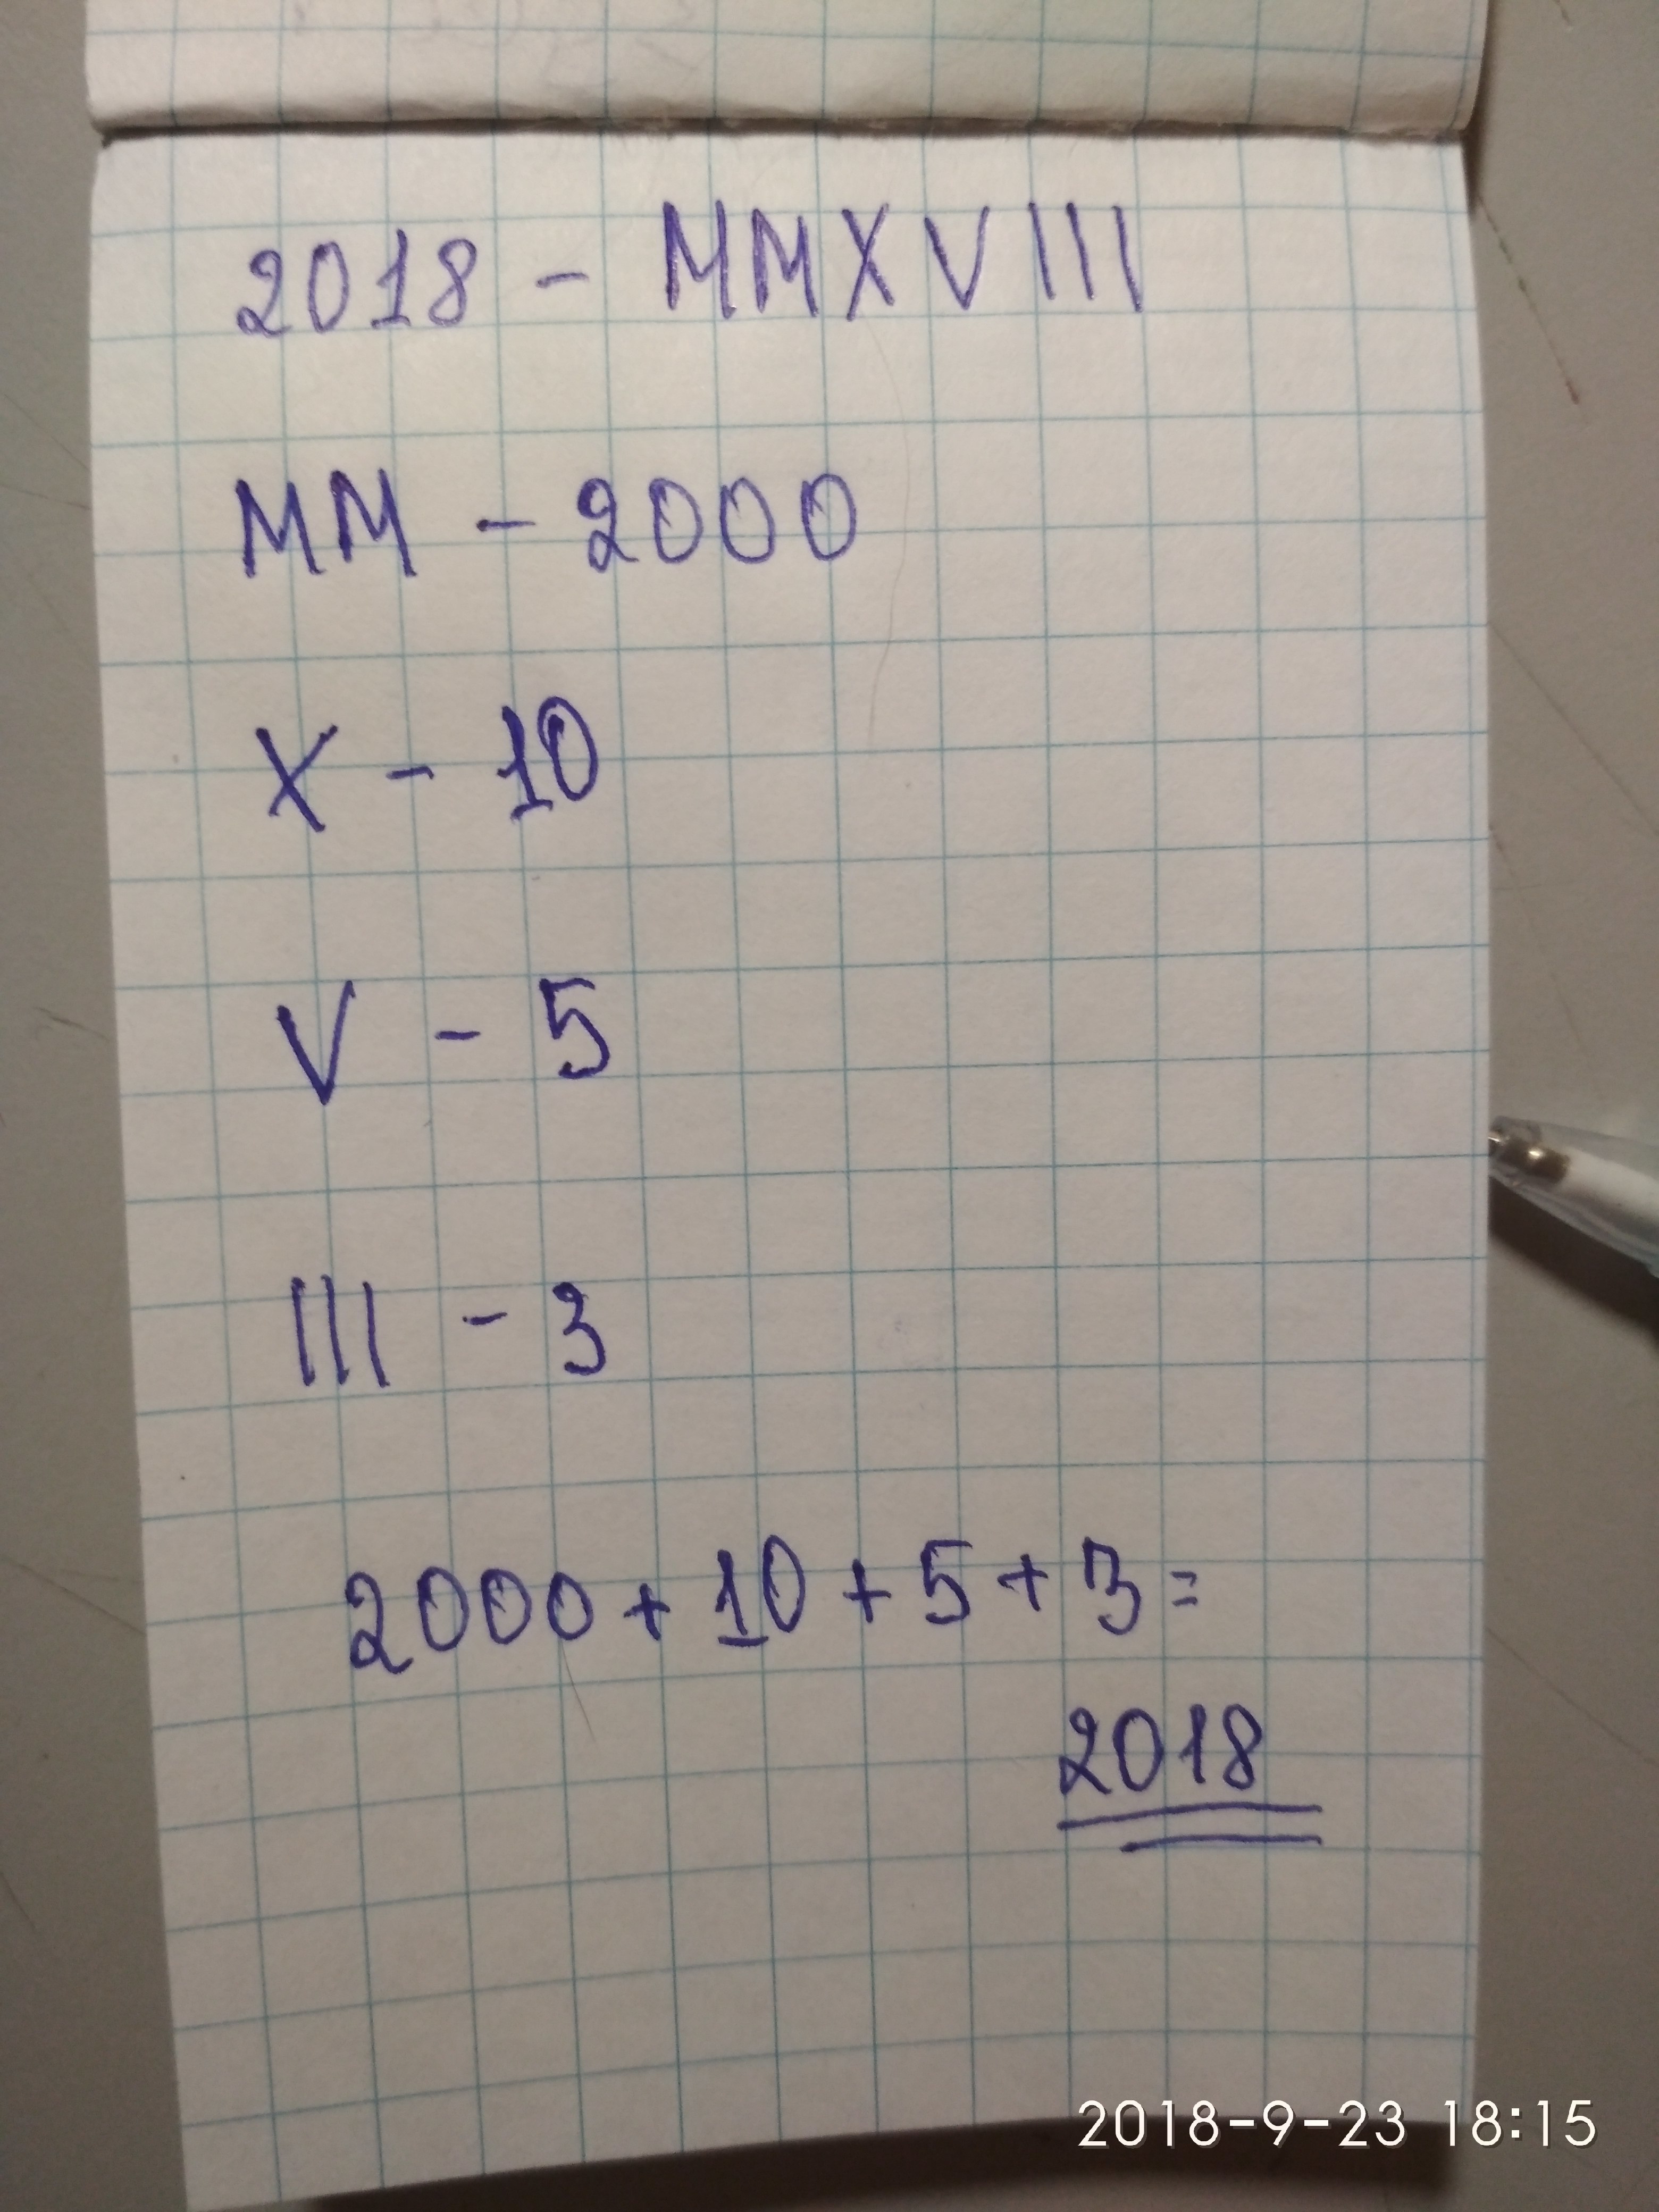 2018 - MMXVIII
MM - 2000
X - 10
V - 5
III - 3
2000 + 10 + 5 + 3 =
2018
2018-9-23 18:15